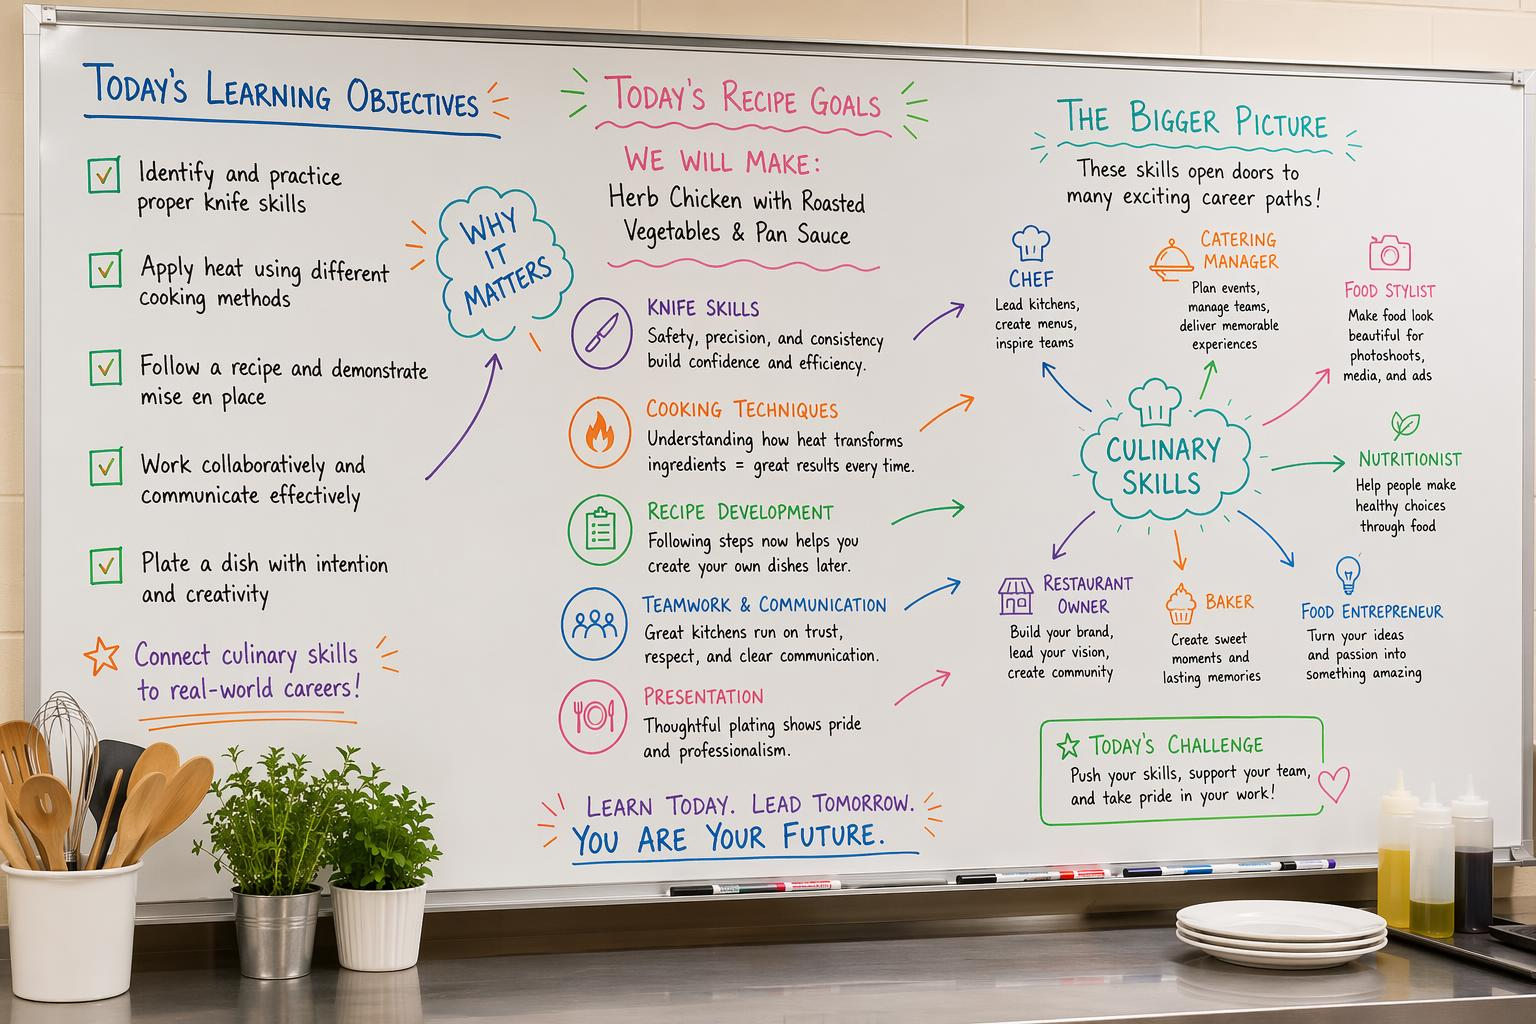 TODAY'S LEARNING OBJECTIVES
Identify and practice
proper knife skills
Apply heat using different
cooking methods
Follow a recipe and demonstrate
mise en place
Work collaboratively and
communicate effectively
Plate a dish with intention
and creativity
Connect culinary skills
to real-world careers!
WHY
IT
MATTERS
TODAY'S RECIPE GOALS
WE WILL MAKE:
Herb Chicken with Roasted
Vegetables & Pan Sauce
KNIFE SKILLS
Safety, precision, and consistency
build confidence and efficiency.
COOKING TECHNIQUES
Understanding how heat transforms
ingredients = great results every time.
RECIPE DEVELOPMENT
Following steps now helps you
create your own dishes later.
TEAMWORK & COMMUNICATION
Great kitchens run on trust,
respect, and clear communication.
PRESENTATION
Thoughtful plating shows pride
and professionalism.
LEARN TODAY. LEAD TOMORROW.
YOU ARE YOUR FUTURE.
THE BIGGER PICTURE
These skills open doors to
many exciting career paths!
CHEF
Lead kitchens,
create menus,
inspire teams
CATERING
MANAGER
Plan events,
manage teams,
deliver memorable
experiences
FOOD STYLIST
Make food look
beautiful for
photoshoots,
media, and ads
CULINARY
SKILLS
NUTRITIONIST
Help people make
healthy choices
through food
RESTAURANT
OWNER
Build your brand,
lead your vision,
create community
BAKER
Create sweet
moments and
lasting memories
FOOD ENTREPRENEUR
Turn your ideas
and passion into
something amazing
TODAY'S CHALLENGE
Push your skills, support your team,
and take pride in your work!